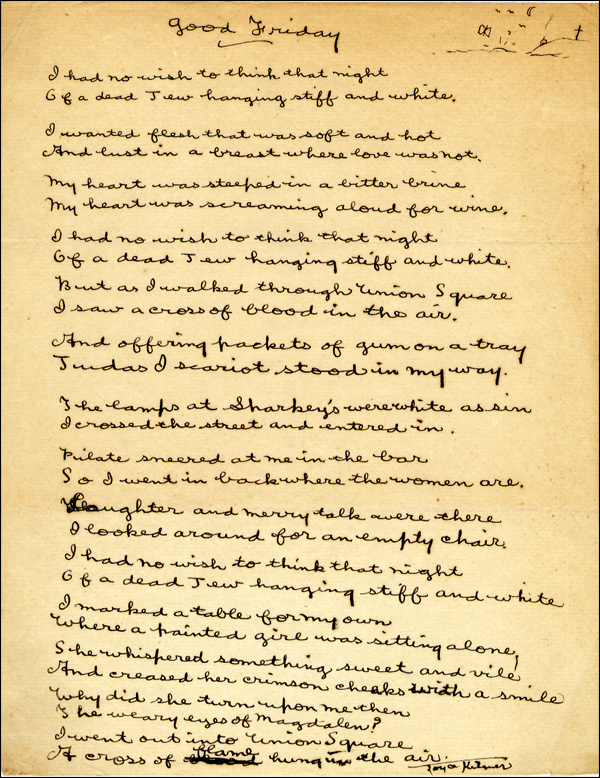 Good Friday
I had no wish to think that night
Of a dead Jew hanging stiff and white.
I wanted flesh that was soft and hot
And lust in a breast where love was not.
My heart was steeped in a bitter brine
My heart was screaming aloud for wine.
I had no wish to think that night
Of a dead Jew hanging stiff and white.
But as I walked through Union Square
I saw a cross of blood in the air.
And offering packets of gum on a tray
Judas Iscariot stood in my way.
The lamps at Sharkey's were white as sin
I crossed the street and entered in.
Pilate sneered at me in the bar
So I went in back where the women are.
Laughter and merry talk were there
I looked around for an empty chair.
I had no wish to think that night
Of a dead Jew hanging stiff and white
I marked a table for my own
Where a painted girl was sitting alone,
She whispered something sweet and vile!
And creased her crimson cheaks with a smile
Why did she turn upon me then
The weary eyes of Magdalen?
I went out into Union Square
A cross of flame hung in the air.
Joyce Kilmer